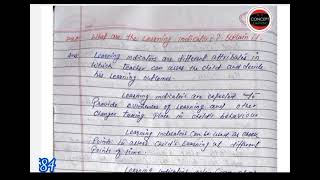 CONCEPT
What are the Learning indicators? Explain it
Ans Learning indicators are different attributes in
which teacher can assess the child and decide
his learning outcomes.
Learning indicators are expected to
Provide evidences of learning and other
changes taking place in child's behaviour
Learning indicators can be used as check
Points to assess child's learning at different
Points of time.
Learning indicators
84